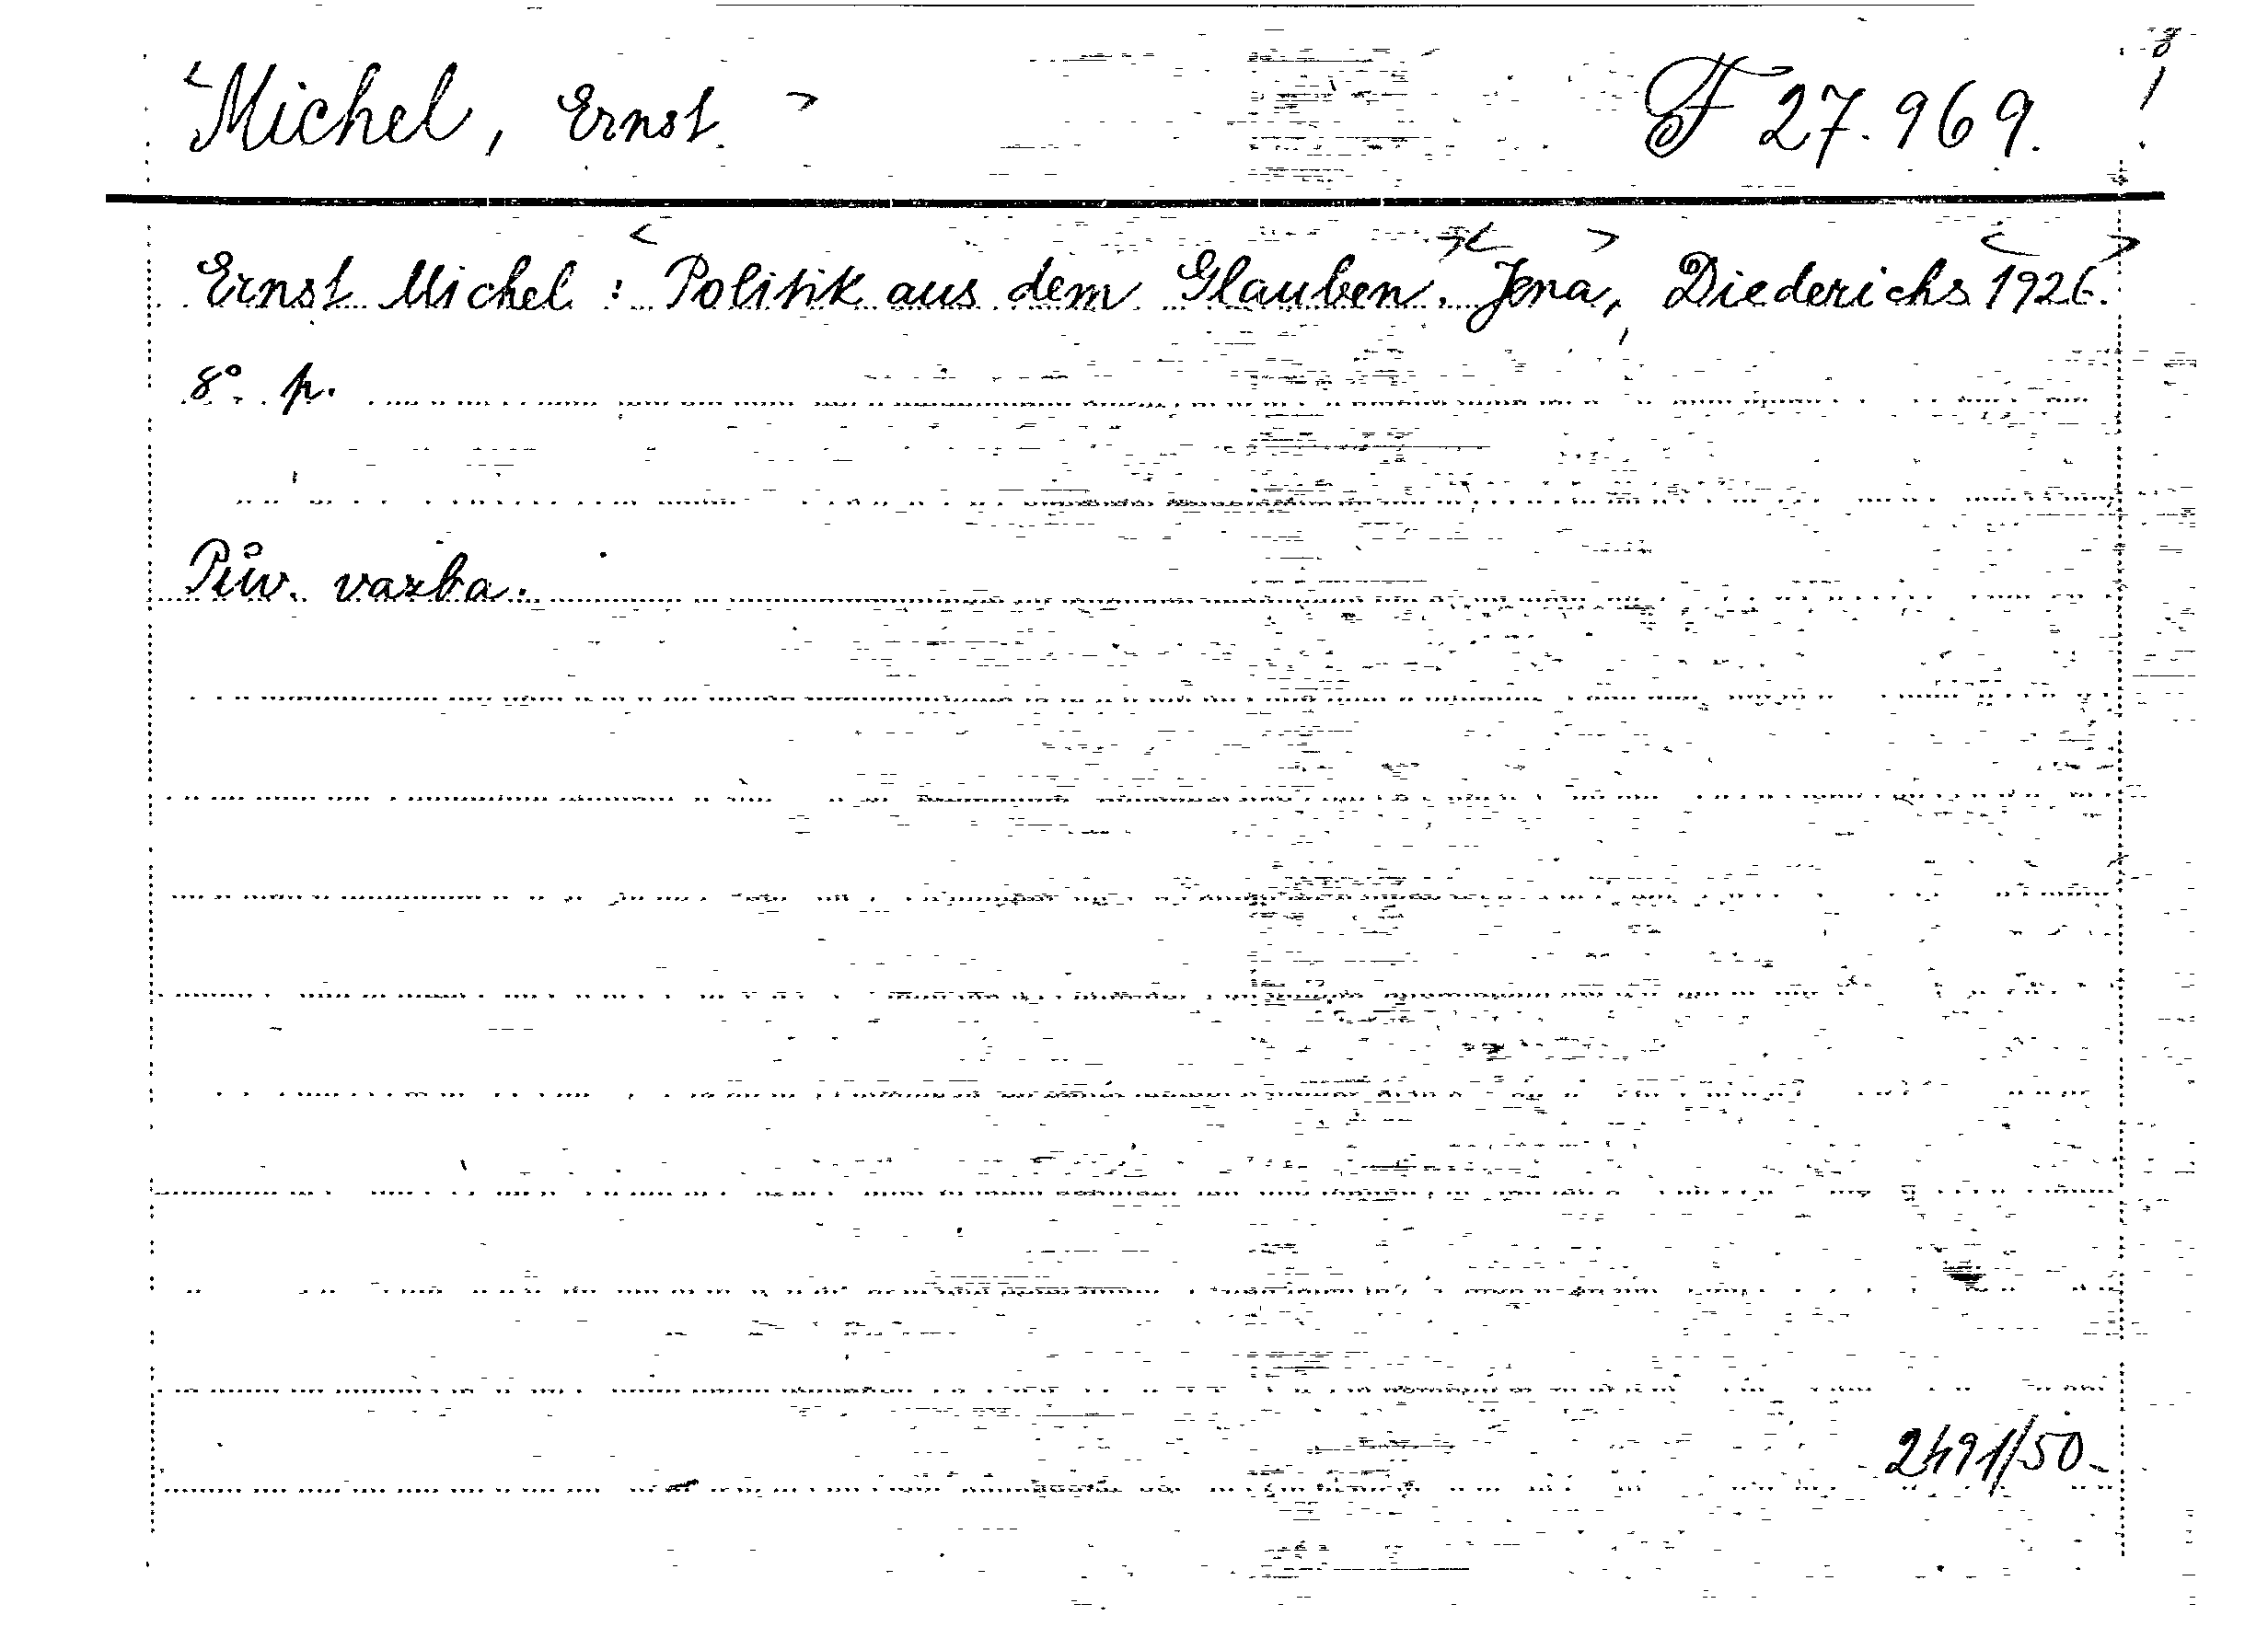 <Michel, Ernst> F 27.969.
Ernst Michel: <Politik aus dem Glauben.> <Jena,> Diederichs <1926.>
8°. p.
Pův. vazba.
2491/50